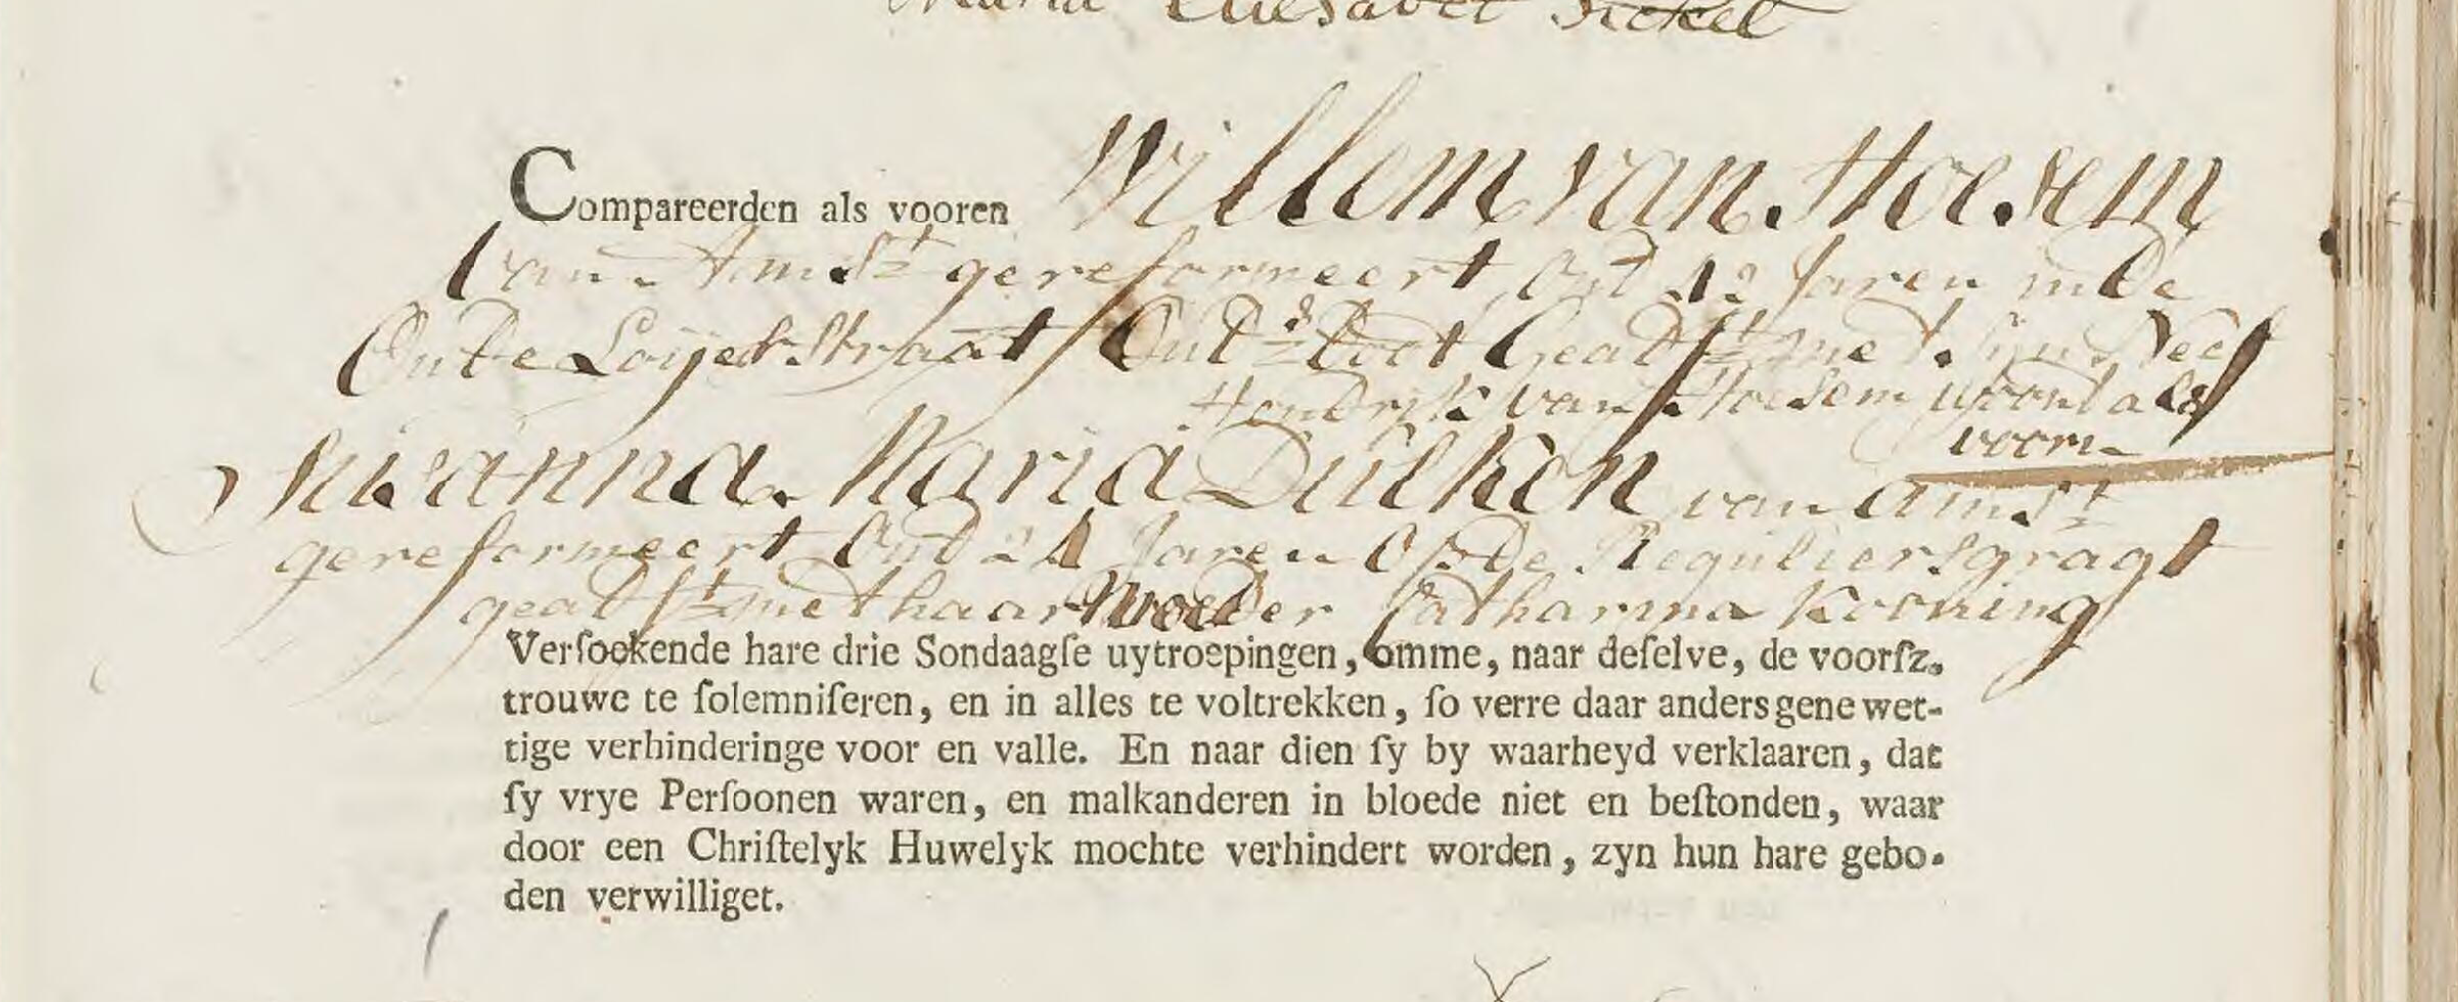 Maria Eliesabet
Compareerden als vooren Willem van Hoesem
van Amst gereformeert, Oud Jaren in de
Oude Loyerstraat Oud:s doot Geadst met sijn Neef
Hendrik van Hoesem woont als
voorn
Susanna Maria Dulken van Amst
gereformeert Oud 24 Jaren Op de Reguliersgragt
geadst met haar Moeder Catharina Kooning
Verſoekende hare drie Sondaagſe uytroepingen, omme, naar deſelve, de voorſz.
trouwe te ſolemniſeren, en in alles te voltrekken, ſo verre daar anders gene wet-
tige verhinderinge voor en valle. En naar dien ſy by waarheyd verklaaren, dat
ſy vrye Perſoonen waren, en malkanderen in bloede niet en beſtonden, waar
door een Chriſtelyk Huwelyk mochte verhindert worden, zyn hun hare gebo-
den verwilliget.